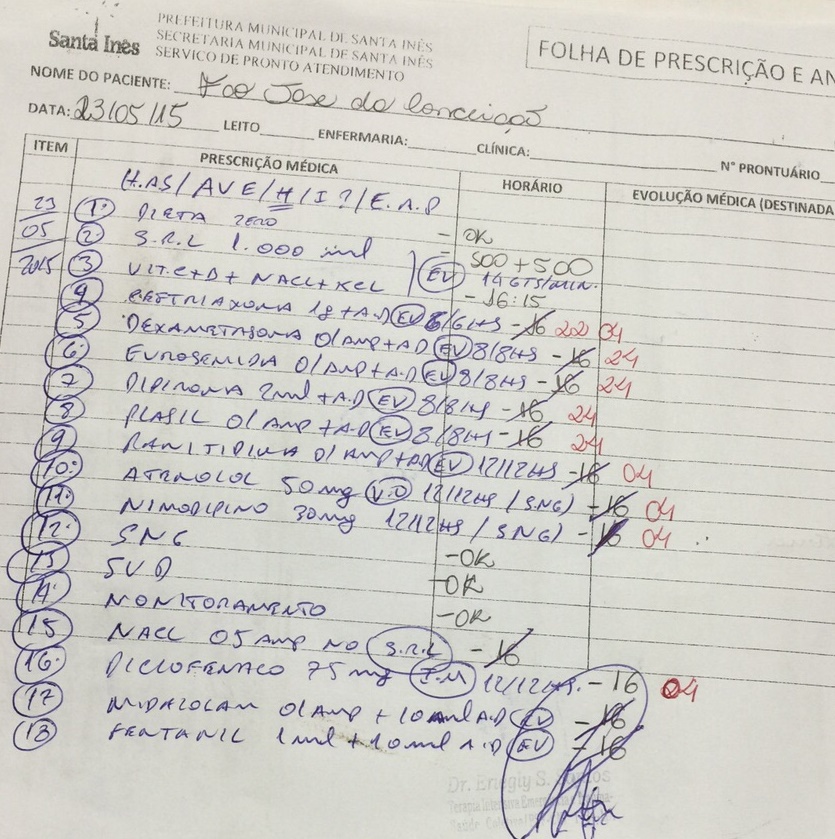 Santa Inês
PREFEITURA MUNICIPAL DE SANTA INÊS
SECRETARIA MUNICIPAL DE SANTA INÊS
SERVICO DE PRONTO ATENDIMENTO
FOLHA DE PRESCRIÇÃO E AN
NOME DO PACIENTE: Fco Jose da Conceição
DATA: 23/05/15 LEITO ENFERMARIA: CLÍNICA: N° PRONTUÁRIO
ITEM PRESCRIÇÃO MÉDICA HORÁRIO EVOLUÇÃO MÉDICA (DESTINADA
H.AS/AVE/H/I?/E.A.P
23 1. DIETA ZERO - OK
05 2. S.R.L 1.000 ml - 500 + 500
2015 3 VIT.C+D+NACL+KCL EV 14 GTS/MIN.
- 16:15
4 1g + A.D EV 6/6HS - 16 22 04
5 DEXAMETASONA 01 AMP + AD EV 8/8HS - 16 24
6. FUROSEMIDA 01 AMP + A.D EV 8/8HS - 16 24
7 DIPIRONA 2ml + A.D EV 8/8HS - 16 24
8 PLASIL 01 AMP + A.D EV 8/8HS - 16 24
9 RANITIDINA 01 AMP + AD EV 12/12HS - 16 04
10. ATENOLOL 50mg V.O 12/12HS / SNG) - 16 04
11. NIMODIPINO 30mg 12/12HS / SNG) - 16 04
12. SNG - OK
13 SVD - OK
14. MONITORAMENTO - OK
15 NACL 05 AMP NO S.R.L - 16
16. DICLOFENACO 75mg I.M 12/12HS. - 16 04
17 MIDAZOLAM 01 AMP + 10ml A.D EV - 16
18 FENTANIL 1ml + 10ml A.D EV - 16
Dr.